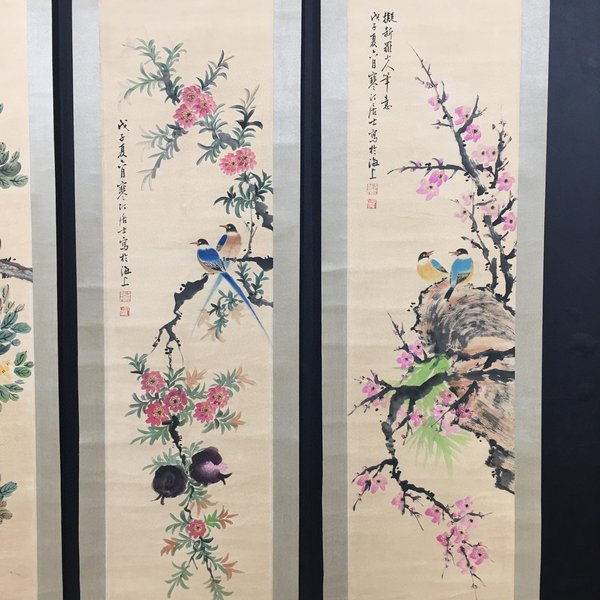 擬新羅山人筆意
戊子夏六月寒江居士寫於海上
戊子夏六月寒江居士寫於海上